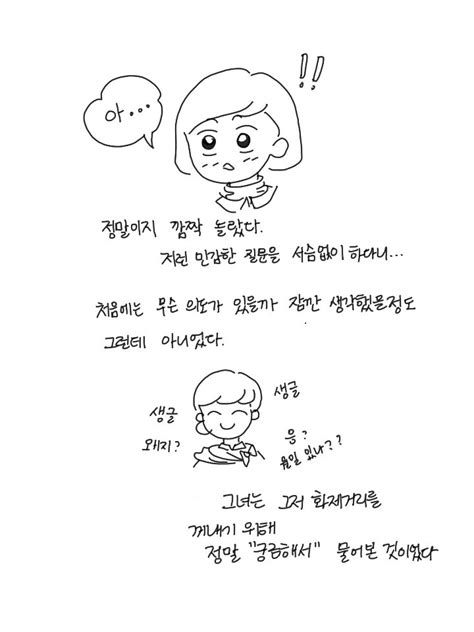 아...
!!
정말이지 깜짝 놀랐다.
저런 민감한 질문을 서슴없이 하다니...
처음에는 무슨 의도가 있을까 잠깐 생각했을정도
그런데 아니었다.
생글
생글
왜지?
응?
뭔일 있나??
그녀는 그저 화제거리를
꺼내기 위해
정말 "궁금해서" 물어본 것이었다